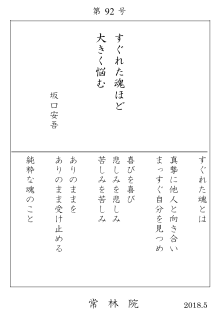 第 92 号
すぐれた魂ほど
大きく悩む
坂口安吾
すぐれた魂とは
真摯に他人と向き合い
まっすぐ自分を見つめ
喜びを喜び
悲しみを悲しみ
苦しみを苦しみ
ありのままを
ありのまま受け止める
純粋な魂のこと
常林院
2018.5